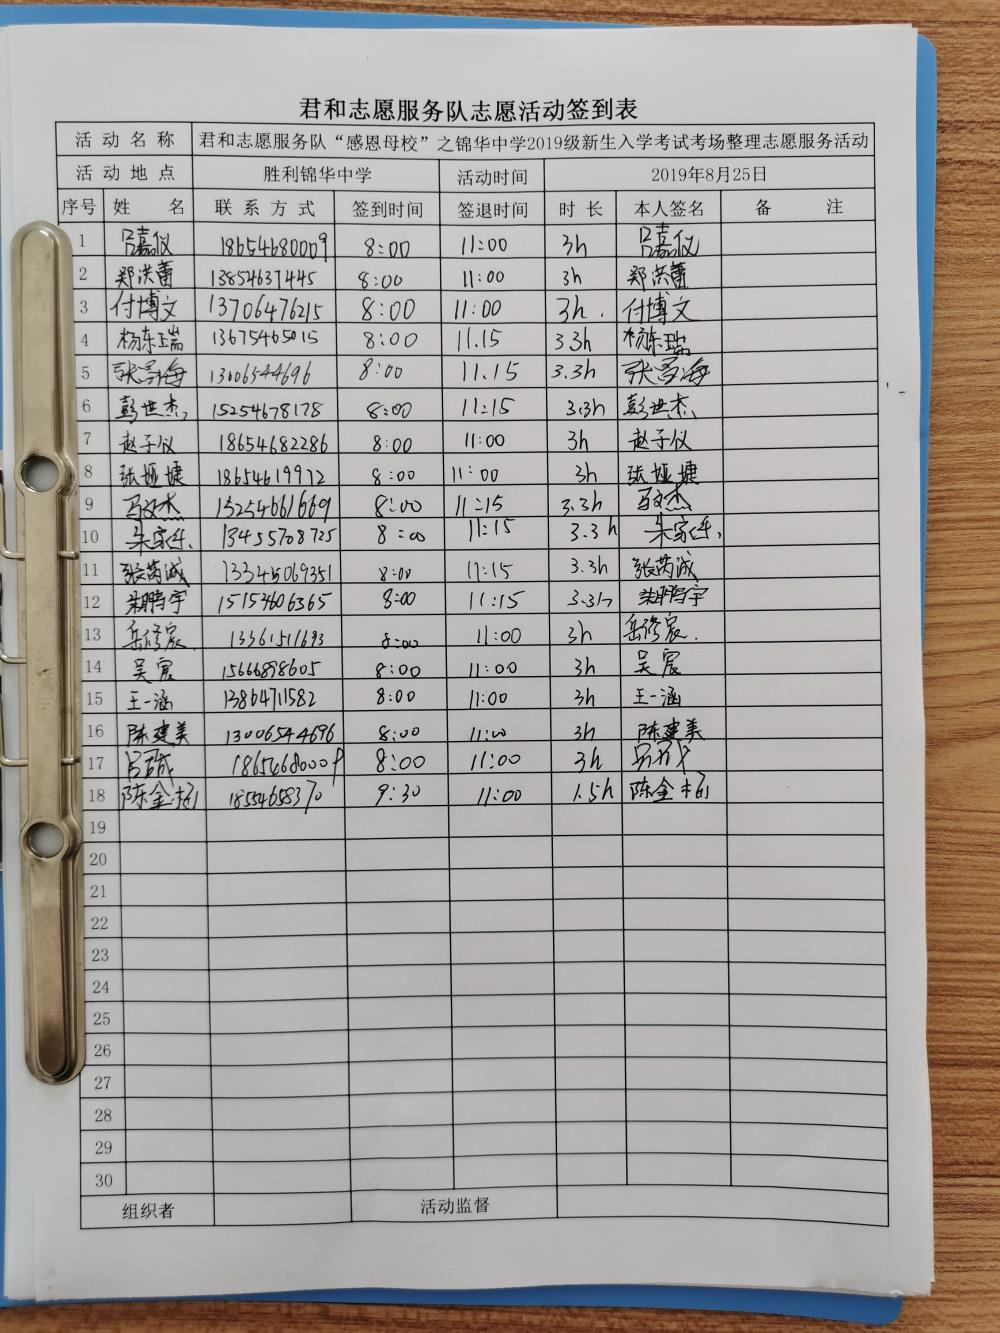 君和志愿服务队志愿活动签到表
活动名称 君和志愿服务队“感恩母校”之锦华中学2019级新生入学考试考场整理志愿服务活动
活动地点 胜利锦华中学 活动时间 2019年8月25日
序号 姓 名 联系方式 签到时间 签退时间 时长 本人签名 备 注
1 吕嘉仪 18654680009 8:00 11:00 3h 吕嘉仪
2 郑洪蕾 13854637445 8:00 11:00 3h 郑洪蕾
3 付博文 13706476215 8:00 11:00 3h. 付博文
4 杨东瑞 13675465015 8:00 11.15 3.3h 杨东瑞
5 13006544696 8:00 11.15 3.3h
6 彭世杰 15254678178 8:00 11:15 3.3h 彭世杰
7 赵子仪 18654682286 8:00 11:00 3h 赵子仪
8 张娅婕 18654619972 8:00 11:00 3h 张娅婕
9 马文杰 15254661669 8:00 11:15 3.3h 马文杰
10 13455708725 8:00 11:15 3.3h
11 张芮诚 13345069351 8:00 11:15 3.3h 张芮诚
12 15154606365 8:00 11:15 3.3h
13 岳修宸 13361511693 8:00 11:00 3h 岳修宸.
14 吴宸 15666898605 8:00 11:00 3h 吴宸
15 王一涵 13864711582 8:00 11:00 3h 王一涵
16 陈建美 13006544696 8:00 11:00 3h 陈建美
17 8:00 11:00 3h
18 陈金杨 18554658370 9:30 11:00 1.5h 陈金杨
19
20
21
22
23
24
25
26
27
28
29
30
组织者 活动监督